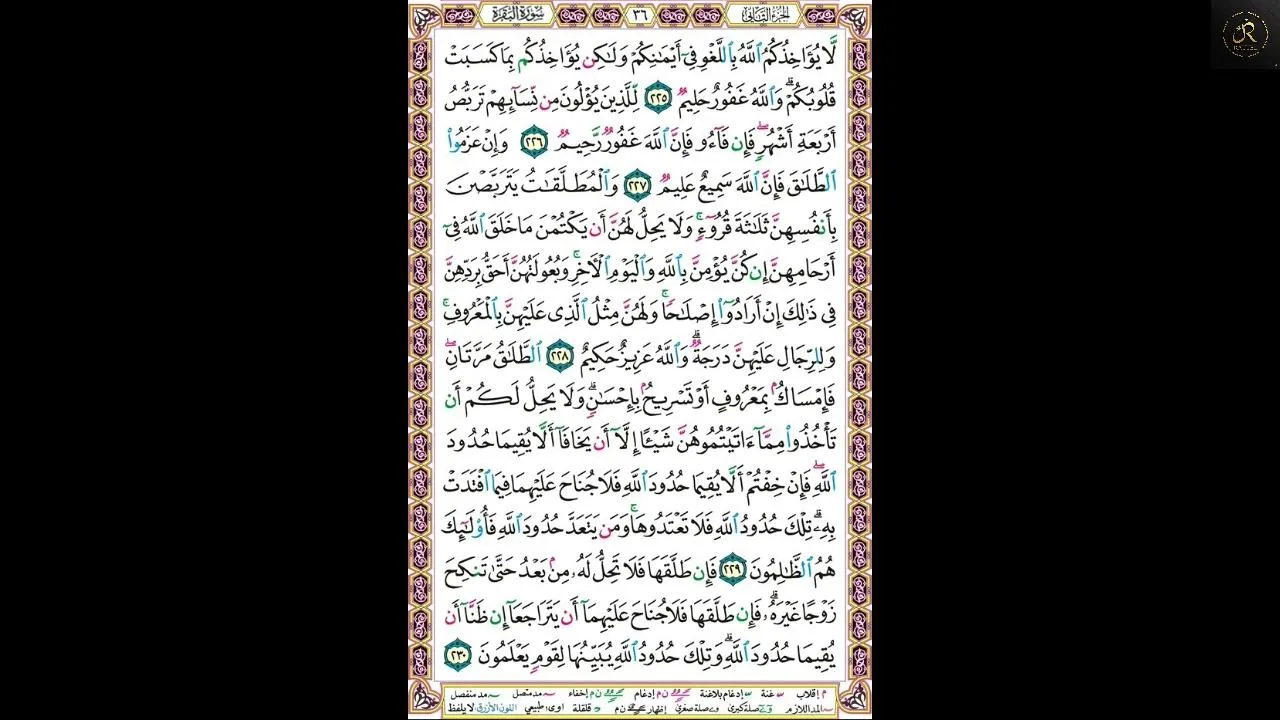 الجزء الثاني ٣٦ سورة البقرة
لَّا يُؤَاخِذُكُمُ ٱللَّهُ بِٱللَّغْوِ فِىٓ أَيْمَـٰنِكُمْ وَلَـٰكِن يُؤَاخِذُكُم بِمَا كَسَبَتْ
قُلُوبُكُمْ ۗ وَٱللَّهُ غَفُورٌ حَلِيمٌ ٢٢٥ لِّلَّذِينَ يُؤْلُونَ مِن نِّسَآئِهِمْ تَرَبُّصُ
أَرْبَعَةِ أَشْهُرٍ ۖ فَإِن فَآءُو فَإِنَّ ٱللَّهَ غَفُورٌ رَّحِيمٌ ٢٢٦ وَإِنْ عَزَمُوا۟
ٱلطَّلَـٰقَ فَإِنَّ ٱللَّهَ سَمِيعٌ عَلِيمٌ ٢٢٧ وَٱلْمُطَلَّقَـٰتُ يَتَرَبَّصْنَ
بِأَنفُسِهِنَّ ثَلَـٰثَةَ قُرُوٓءٍ ۚ وَلَا يَحِلُّ لَهُنَّ أَن يَكْتُمْنَ مَا خَلَقَ ٱللَّهُ فِىٓ
أَرْحَامِهِنَّ إِن كُنَّ يُؤْمِنَّ بِٱللَّهِ وَٱلْيَوْمِ ٱلْـَٔاخِرِ ۚ وَبُعُولَتُهُنَّ أَحَقُّ بِرَدِّهِنَّ
فِى ذَٰلِكَ إِنْ أَرَادُوٓا۟ إِصْلَـٰحًا ۚ وَلَهُنَّ مِثْلُ ٱلَّذِى عَلَيْهِنَّ بِٱلْمَعْرُوفِ ۚ
وَلِلرِّجَالِ عَلَيْهِنَّ دَرَجَةٌ ۗ وَٱللَّهُ عَزِيزٌ حَكِيمٌ ٢٢٨ ٱلطَّلَـٰقُ مَرَّتَانِ ۖ
فَإِمْسَاكٌۢ بِمَعْرُوفٍ أَوْ تَسْرِيحٌۢ بِإِحْسَـٰنٍ ۗ وَلَا يَحِلُّ لَكُمْ أَن
تَأْخُذُوا۟ مِمَّآ ءَاتَيْتُمُوهُنَّ شَيْـًٔا إِلَّآ أَن يَخَافَآ أَلَّا يُقِيمَا حُدُودَ
ٱللَّهِ ۖ فَإِنْ خِفْتُمْ أَلَّا يُقِيمَا حُدُودَ ٱللَّهِ فَلَا جُنَاحَ عَلَيْهِمَا فِيمَا ٱفْتَدَتْ
بِهِۦ ۗ تِلْكَ حُدُودُ ٱللَّهِ فَلَا تَعْتَدُوهَا ۚ وَمَن يَتَعَدَّ حُدُودَ ٱللَّهِ فَأُو۟لَـٰٓئِكَ
هُمُ ٱلظَّـٰلِمُونَ ٢٢٩ فَإِن طَلَّقَهَا فَلَا تَحِلُّ لَهُۥ مِنۢ بَعْدُ حَتَّىٰ تَنكِحَ
زَوْجًا غَيْرَهُۥ ۗ فَإِن طَلَّقَهَا فَلَا جُنَاحَ عَلَيْهِمَآ أَن يَتَرَاجَعَآ إِن ظَنَّآ أَن
يُقِيمَا حُدُودَ ٱللَّهِ ۗ وَتِلْكَ حُدُودُ ٱللَّهِ يُبَيِّنُهَا لِقَوْمٍ يَعْلَمُونَ ٢٣٠
م إقلاب غنة إدغام بلاغنة ن م إدغام ن م إخفاء مد متصل مد منفصل
المد اللازم صلة كبرى صلة صغرى إظهار ن م قلقلة اوى طبيعي اللون الأزرق لا يلفظ